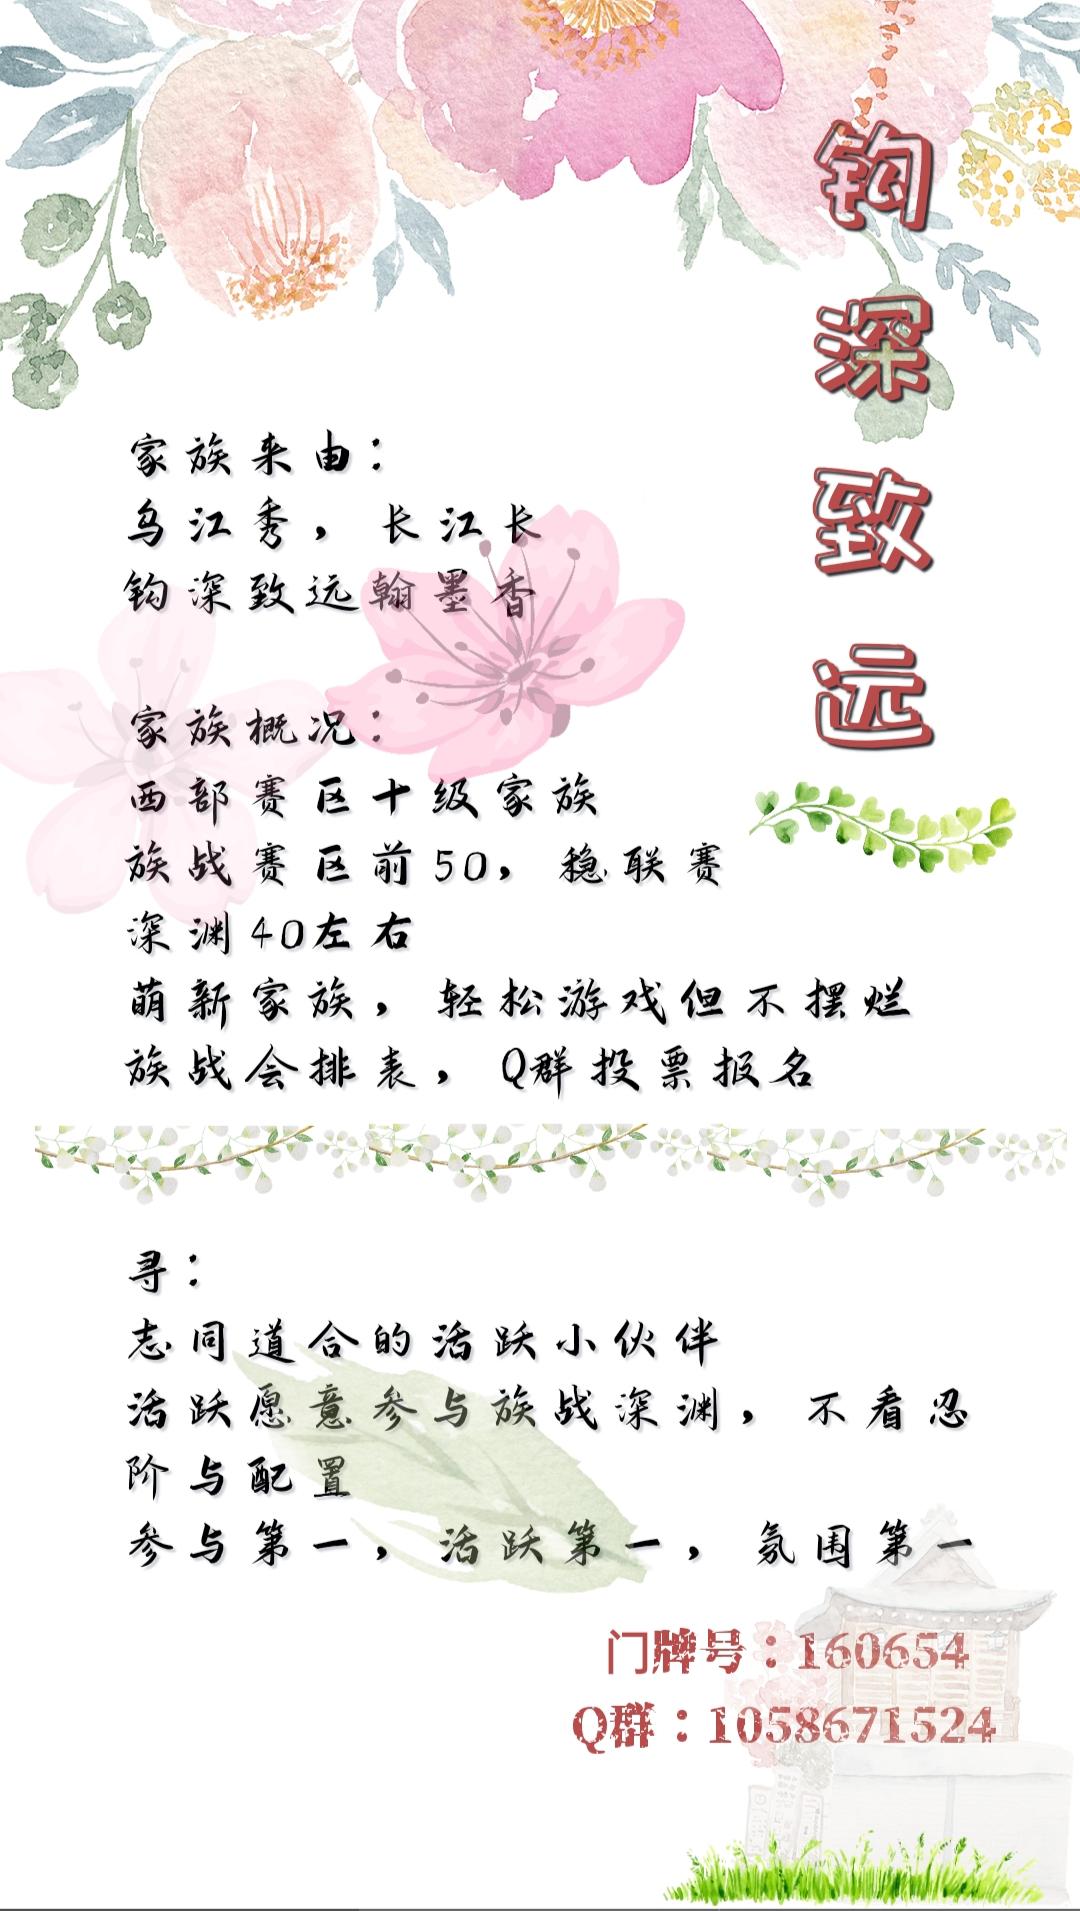 钩深致远
家族来由：
乌江秀，长江长
钩深致远翰墨香
家族概况：
西部赛区十级家族
族战赛区前50，稳联赛
深渊40左右
萌新家族，轻松游戏但不摆烂
族战会排表，Q群投票报名
寻：
志同道合的活跃小伙伴
活跃愿意参与族战深渊，不看忍
阶与配置
参与第一，活跃第一，氛围第一
门牌号：160654
Q群：1058671524